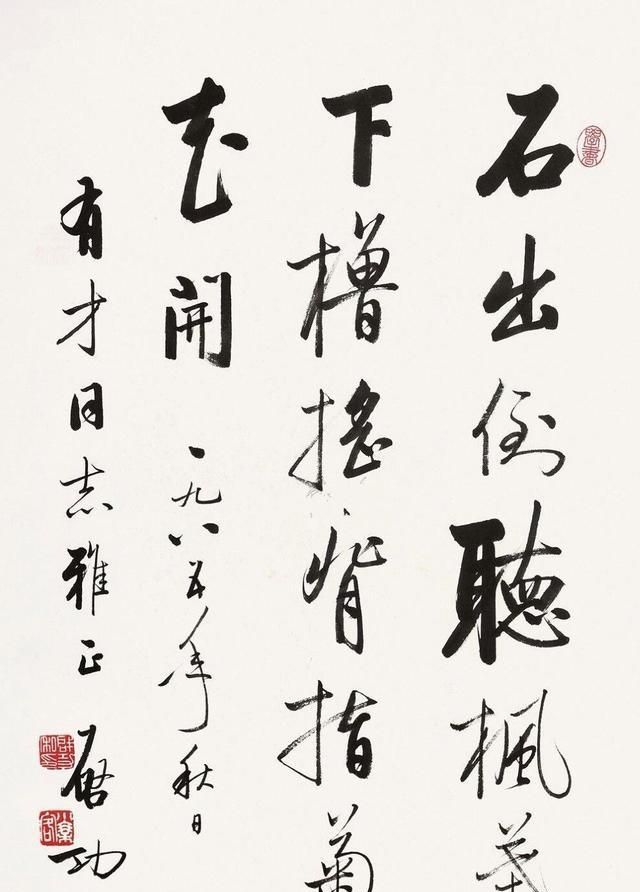 石出倒聽楓葉
下櫓搖背指菊
花開 一九八五年秋日
有才同志雅正 啓功